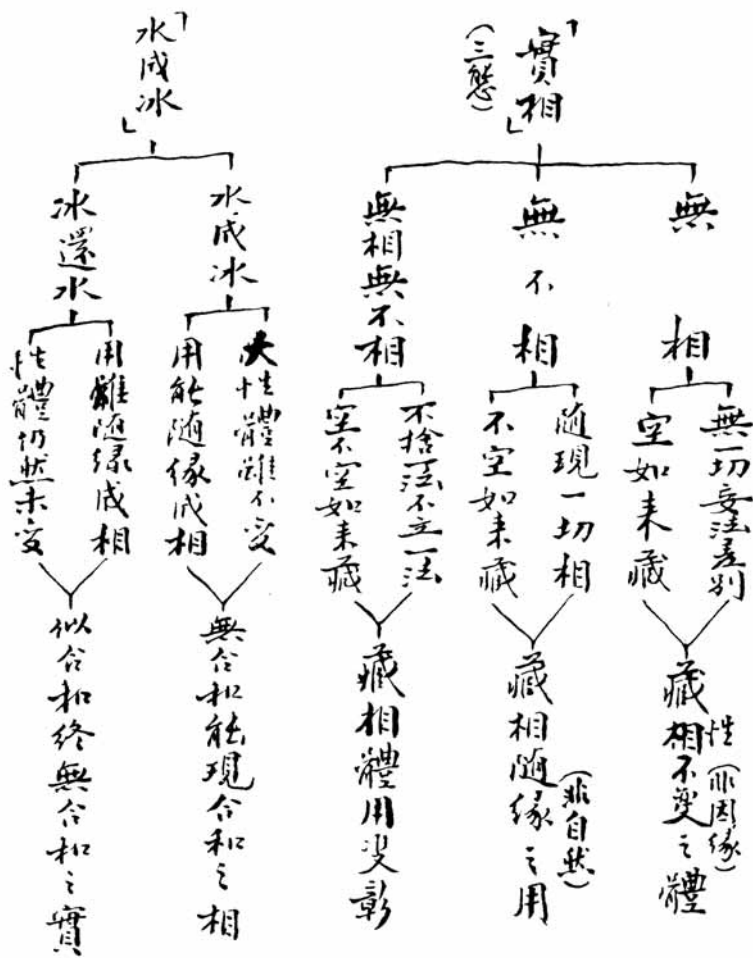 「實相」
(三態)
無相
無一切妄法差別
空如來藏
藏相不變之體
性(非因緣)
無不相
隨現一切相
不空如來藏
藏相隨緣之用
(非自然)
無相無不相
不捨一法不立一法
空不空如來藏
藏相體用雙彰
「水成冰」
水成冰
性體雖不變
用能隨緣成相
無合和能現合和之相
冰還水
用雖隨緣成相
性體仍然未變
似合和終無合和之實